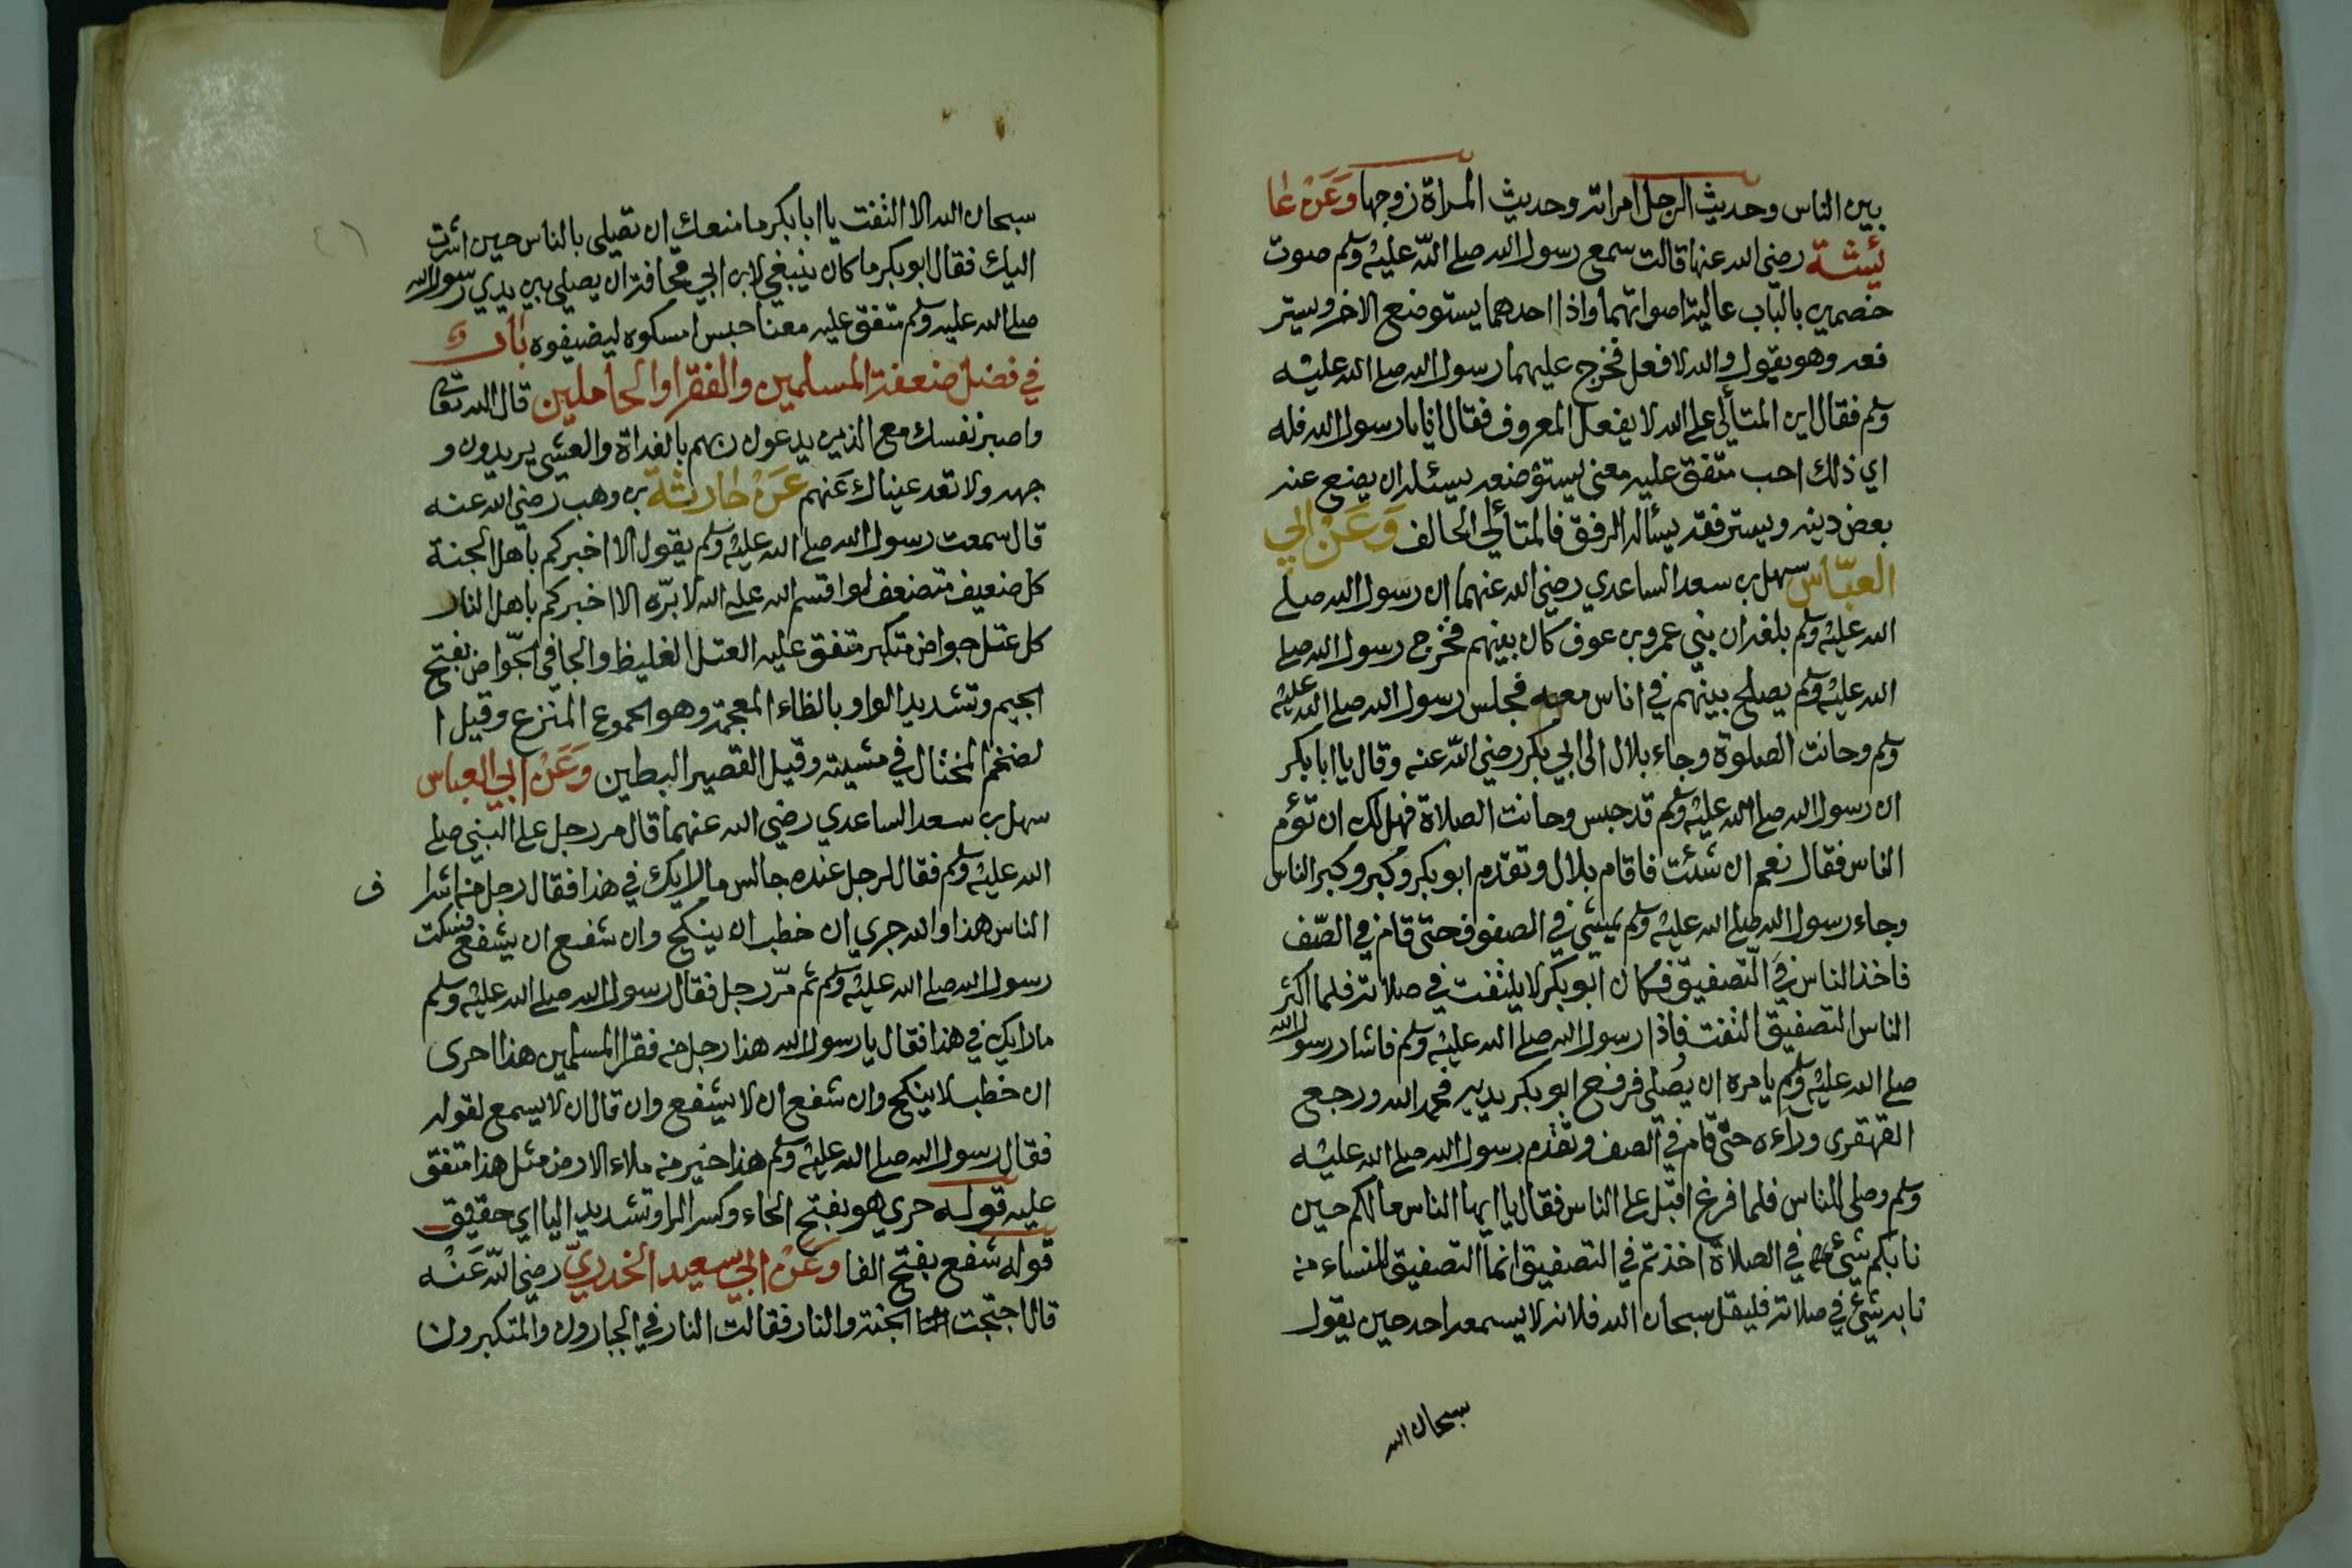 بين الناس وحديث الرجل امراته وحديث المراة زوجها وَعَنْ عا
ئيشة رضي الله عنها قالت سمع رسول الله صلى اللّه عليه وسلم صوت
خصمين بالباب عالية اصواتهما واذا احدهما يستوضع الاخر ويستر
فعه وهو يقول والله لا فعل فخرج عليهما رسول الله صلى الله عليه
وسلم فقال اين المتألي على الله لا يفعل المعروف فقال انا يا رسول الله فله
اي ذلك احب متفق عليه معنى يستوضعه يسئله ان يضع عنه
بعض دينه ويسترفقه يسأله الرفق فالمتألي الحالف وَعَنْ ابي
العبّاس سهل بن سعد الساعدي رضي الله عنهما ان رسول الله صلى
الله عليه وسلم بلغه ان بني عمرو بن عوف كان بينهم فخرج رسول الله صلى
الله عليه وسلم يصلح بينهم في اناس معه فجلس رسول الله صلى الله عليه
وسلم وحانت الصلوة وجاء بلال الى ابي بكر رضي اللّه عنه وقال يا ابا بكر
ان رسول الله صلى الله عليه وسلم قد حبس وحانت الصلاة فهل لك ان تؤم
الناس فقال نعم ان شئت فاقام بلال وتقدم ابو بكر وكبر وكبر الناس
وجاء رسول الله صلى الله عليه وسلم يمشي في الصفوف حتى قام في الصّف
فاخذ الناس في التّصفيق فكان ابو بكر لا يلتفت في صلاته فلما اكثر
الناس التصفيق التفت فاذا رسول الله صلى الله عليه وسلم فاشار رسول الله
صلى الله عليه وسلم يامره ان يُصلي فرفع ابو بكر يديه فحمد الله ورجع
القهقرى وراءه حتى قام في الصف وتقدم رسول الله صلى الله عليه
وسلم وصلى للناس فلما فرغ اقبل على الناس فقال يا ايها الناس مالكم حين
نابكم شئ في الصلاة اخذتم في التصفيق انما التصفيق للنساء من
نابه شئ في صلاته فليقل سبحان الله فلانه لا يسمعه احد حين يقول
سبحان الله
سبحان الله الا التفت يا ابا بكر ما منعك ان تصلي بالناس حين اشرت
اليك فقال ابو بكر ما كان ينبغي لابن ابي قحافة ان يصلي بين يدي رسول الله
صلى الله عليه وسلم متفق عليه معنا حبس امسكوه ليضيفوه باب
في فضل ضعفة المسلمين والفقرا والخاملين قال الله تعالى
واصبر نفسك مع الذين يدعون ربهم بالغداة والعشي يريدون و
جهه ولا تعد عيناك عَنهم عَنْ حارثة بن وهب رضي الله عنه
قال سمعت رسول الله صلى الله عليه وسلم يقول الا اخبركم باهل الجنة
كل ضعيف متضعف لو اقسم الله على الله لابرّه الا اخبركم باهل النار
كل عتل جواض متكبر متفق عليه العتل الغليظ والجافي الجّواض بفتح
الجيم وتشديد الواو بالظاء المعجمة وهو الجموع المنزع وقيل ا
لضخم المختال في مشيته وقيل القصير البطين وَعَنْ ابي العباس
سهل بن سعد الساعدي رضي الله عنهما قال مر رجل على النبي صلى
الله عليه وسلم فقال لرجل عنده جالس ما لا يك في هذا فقال رجل من اشرا ف
الناس هذا والله حري ان خطب ان ينكح وان شفع ان يشفع فسكت
رسول الله صلى الله عليه وسلم ثم مرّ رجل فقال رسول الله صلى الله عليه وسلم
ما رايك في هذا فقال يا رسول الله هذا رجل من فقرا المسلمين هذا احرى
ان خطب لا ينكح وان شفع ان لا يشفع وان قال ان لا يسمع لقوله
فقال رسول الله صلى الله عليه وسلم هذا خير من ملاء الارض مثل هذا متفق
عليه قوله حري هو بفتح الحاء وكسر الرا وتشديد اليا اي حقيق
قوله شفع بفتح الفا وَعَنْ ابي سعيد الخدريّ رضي اللّه عَنْه
قال احتجت الجنة والنار فقالت النار في الجبارون والمتكبرون